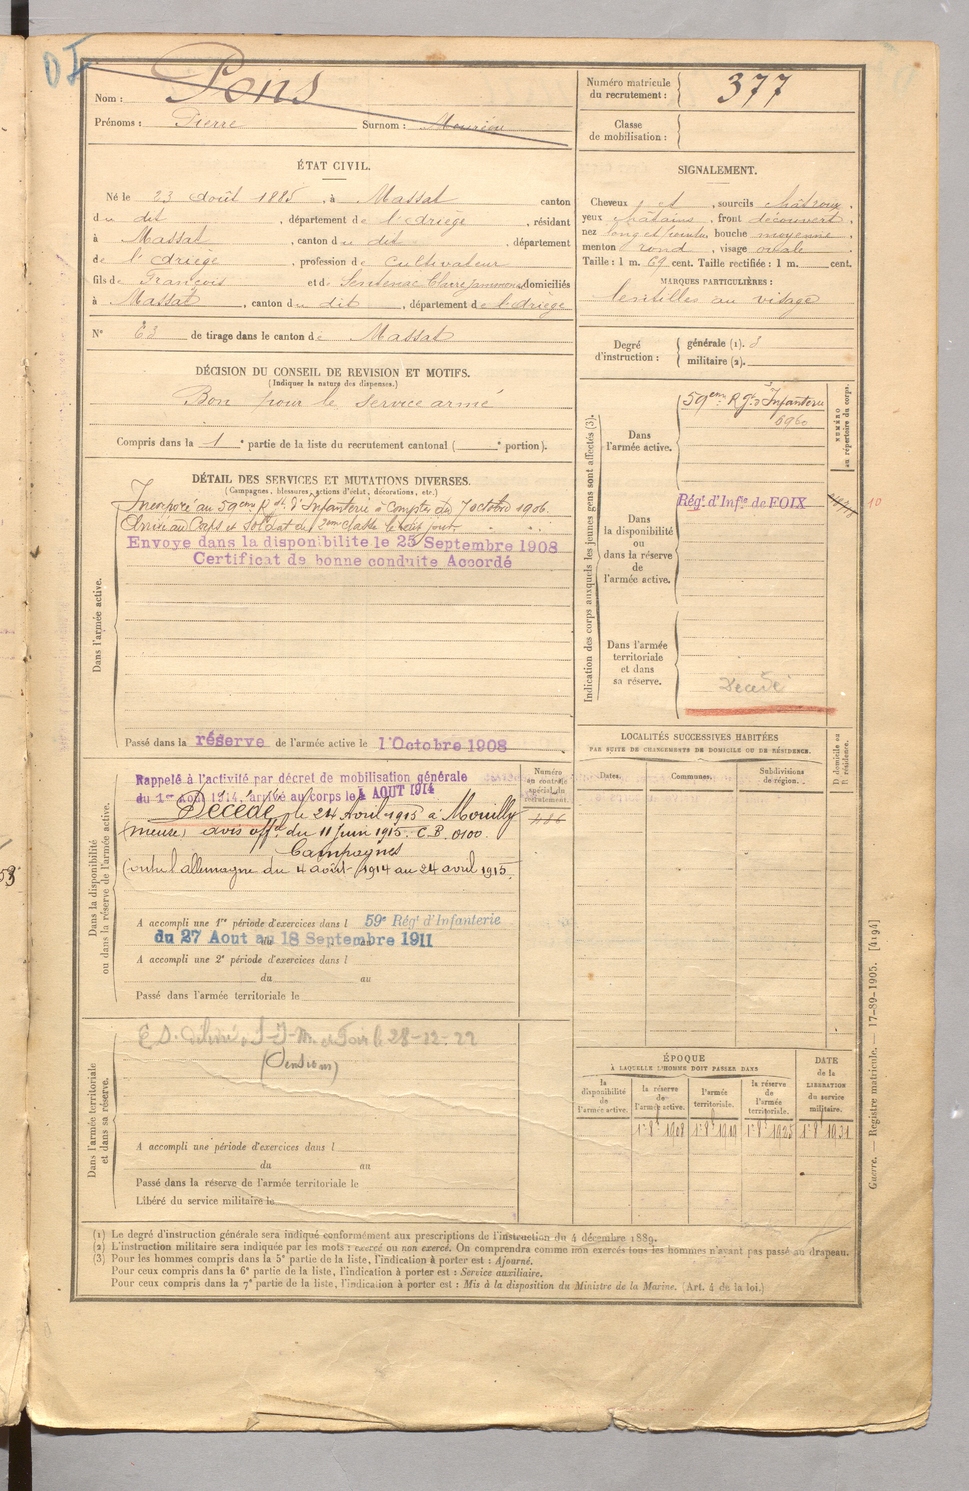 Nom : Pons
Prénoms : Pierre Surnom :
Numéro matricule du recrutement : 377
Classe de mobilisation :
ÉTAT CIVIL.
Né le 23 août 1885, à Massat canton
du dit, département de l'Ariège, résidant
à Massat, canton du dit, département
de l'Ariège, profession de Cultivateur
fils de François et de Sentenac Claire Jeanne domiciliés
à Massat, canton du dit, département de l'Ariège
N° 63 de tirage dans le canton de Massat
SIGNALEMENT.
Cheveux et sourcils châtains,
yeux châtains, front découvert,
nez long et pointu, bouche moyenne,
menton rond, visage ovale
Taille : 1 m. 69 cent. Taille rectifiée : 1 m. cent.
MARQUES PARTICULIÈRES :
lentilles au visage
Degré d'instruction : générale (1). 3
militaire (2).
DÉCISION DU CONSEIL DE REVISION ET MOTIFS.
(Indiquer la nature des dispenses.)
Bon pour le service armé
Compris dans la 1e partie de la liste du recrutement cantonal ( e portion).
DÉTAIL DES SERVICES ET MUTATIONS DIVERSES.
(Campagnes, blessures, actions d'éclat, décorations, etc.)
Dans l'armée active.
Incorporé au 59eme Rgt d'Infanterie à Compter du 7 octobre 1906.
Arrivé au Corps et Soldat de 2eme classe le dit jour
Envoye dans la disponibilite le 25 Septembre 1908
Certificat de bonne conduite Accordé
Passé dans la réserve de l'armée active le 1' Octobre 1908
Indication des corps auxquels les jeunes gens sont affectés (3).
NUMÉRO au répertoire du corps.
Dans l'armée active. 59eme Rgt d'Infanterie
6960
Dans la disponibilité ou dans la réserve de l'armée active. Régt d'Infie de FOIX
10
Dans l'armée territoriale et dans sa réserve. Décédé
Dans la disponibilité ou dans la réserve de l'armée active.
Numéro au contrôle spécial du recrutement.
Rappelé à l'activité par décret de mobilisation générale
du 1er Août 1914, arrivé au corps le 4 AOUT 1914
Décédé le 24 Avril 1915 à Mouilly
(meuse) avis offel du 11 juin 1915. C.B. 0100.
Campagnes
Contre l'allemagne du 4 août 1914 au 24 avril 1915.
A accompli une 1re période d'exercices dans l 59e Régt d'Infanterie
du 27 Aout au 18 Septembre 1911
A accompli une 2e période d'exercices dans l
du au
Passé dans l'armée territoriale le
LOCALITÉS SUCCESSIVES HABITÉES
PAR SUITE DE CHANGEMENTS DE DOMICILE OU DE RÉSIDENCE.
Dates. Communes. Subdivisions de région. D domicile ou R résidence.
Dans l'armée territoriale et dans sa réserve.
28-12-22
(Pensions)
A accompli une période d'exercices dans l
du au
Passé dans la réserve de l'armée territoriale le
Libéré du service militaire le
ÉPOQUE
À LAQUELLE L'HOMME DOIT PASSER DANS
la disponibilité de l'armée active. la réserve de l'armée active. l'armée territoriale. la réserve de l'armée territoriale. DATE de la LIBÉRATION du service militaire.
1r 8e 1908 1r 8e 1919 1r 8e 1925 1r 8e 1931
(1) Le degré d'instruction générale sera indiqué conformément aux prescriptions de l'instruction du 4 décembre 1889.
(2) L'instruction militaire sera indiquée par les mots : exercé ou non exercé. On comprendra comme non exercés tous les hommes n'ayant pas passé au drapeau.
(3) Pour les hommes compris dans la 5e partie de la liste, l'indication à porter est : Ajourné.
Pour ceux compris dans la 6e partie de la liste, l'indication à porter est : Service auxiliaire.
Pour ceux compris dans la 7e partie de la liste, l'indication à porter est : Mis à la disposition du Ministre de la Marine. (Art. 4 de la loi.)
Guerre. — Registre matricule. — 17-89-1905. [4194]